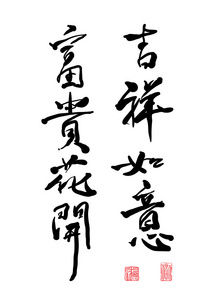 吉祥如意
富貴花開